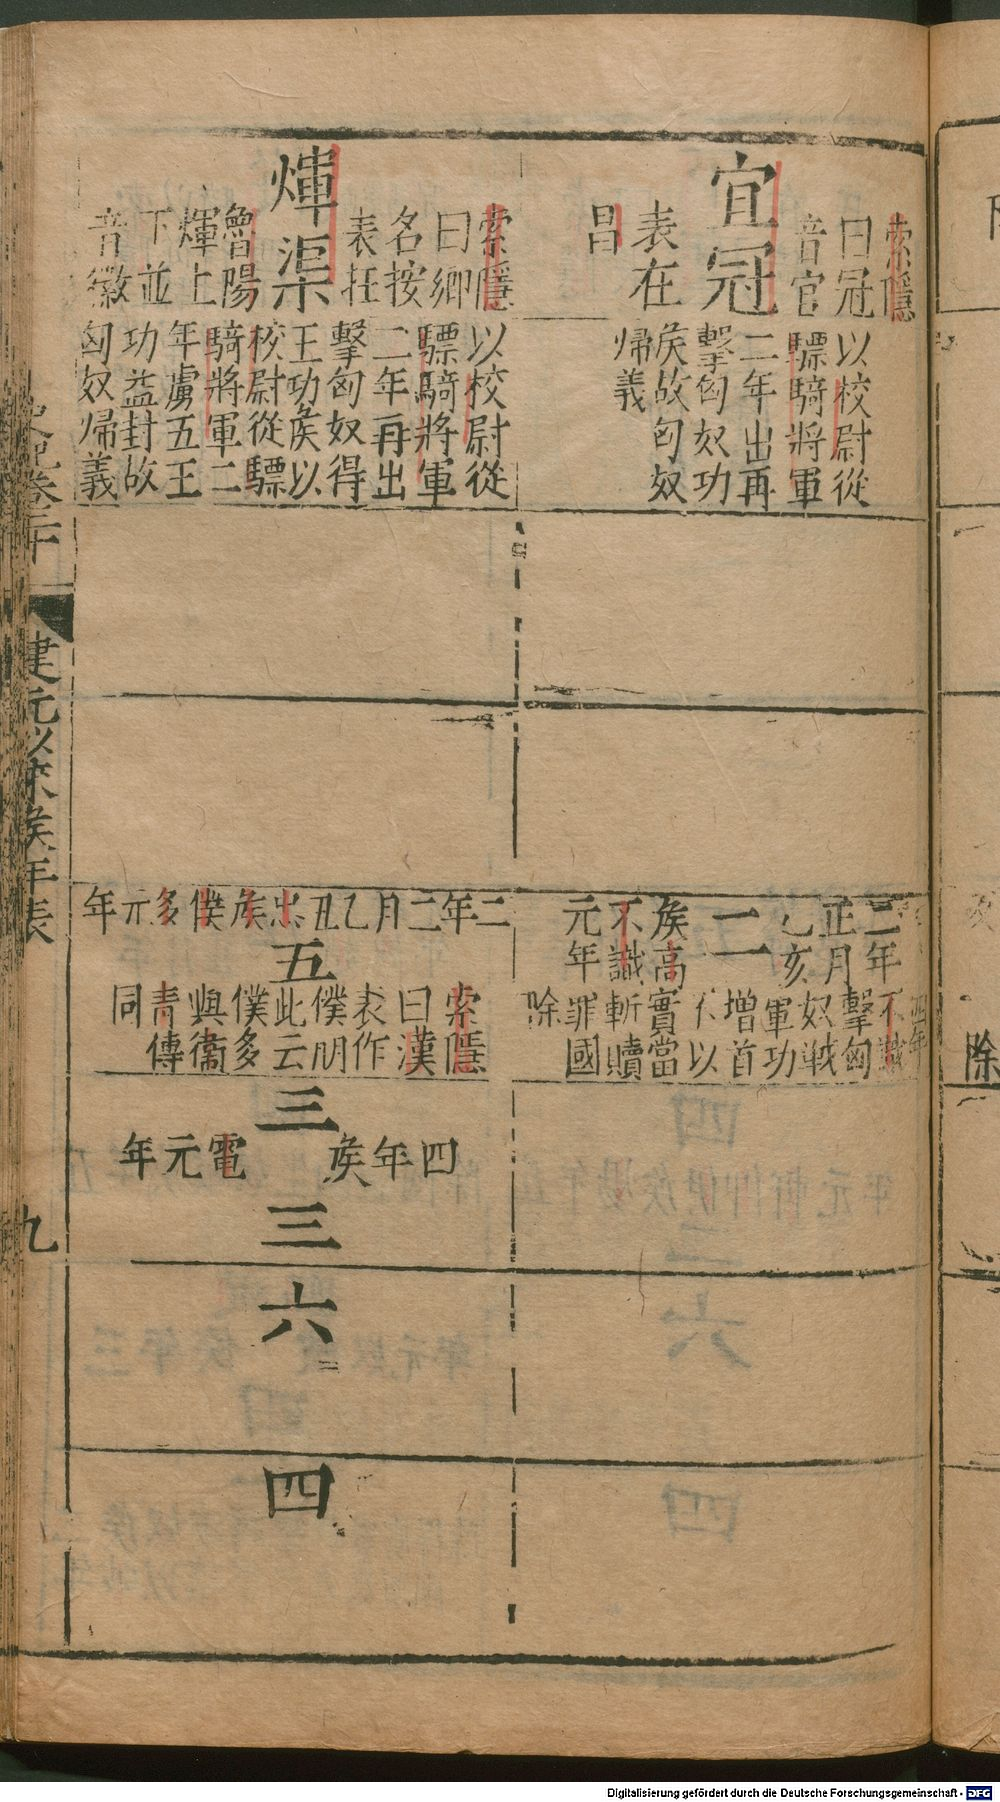 宜冠
索隱
曰冠
音官
表在
昌
以校尉從
驃騎將軍
二年出再
擊匈奴功
矦故匈奴
歸義
二年
正月
乙亥
矦高
不識
元年
二
四年
不識
擊匈
奴戰
軍功
增首
不以
實當
斬贖
罪國
除
煇渠
索隱
曰鄉
名按
表在
魯陽
煇上
下並
音徽
以校尉從
驃騎將軍
二年再出
擊匈奴得
王功矦以
校尉從驃
騎將軍二
年虜五王
功益封故
匈奴歸義
二年二月乙丑忠矦僕多元年
五
索隱
曰漢
表作
僕朋
此云
僕多
與衞
青傳
同
三
四年矦電元年
三
六
四
史記卷二十
建元以來矦年表
九
除
Digitalisierung gefördert durch die Deutsche Forschungsgemeinschaft - DFG